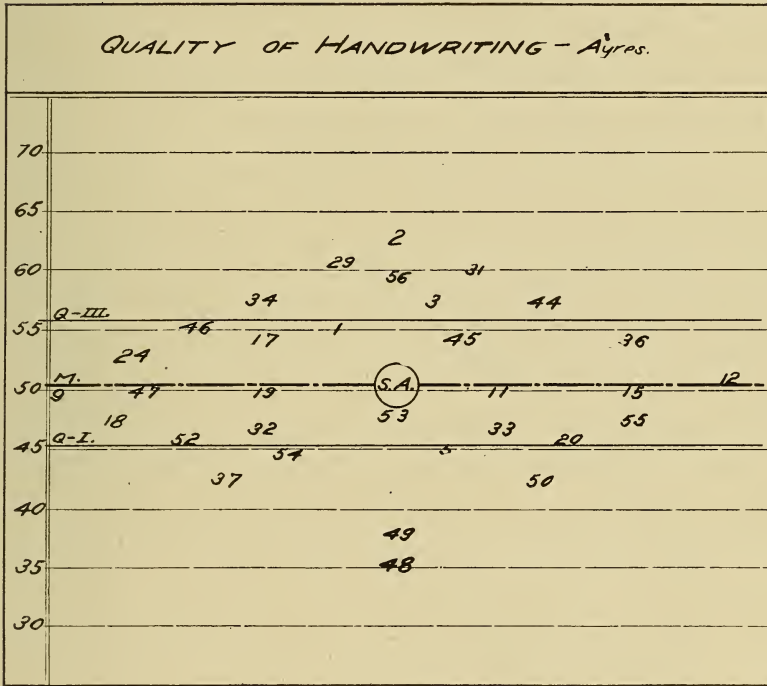 QUALITY OF HANDWRITING - Ayres.
70
65
2
60 29 56 31
34 3 44
Q-III.
55 46 1
17 45 36
24
M. S.A. 12
50 9 47 19 11 15
18 53 55
Q-I. 32 33
45 52 54 5 20
37 50
40
49
35 48
30